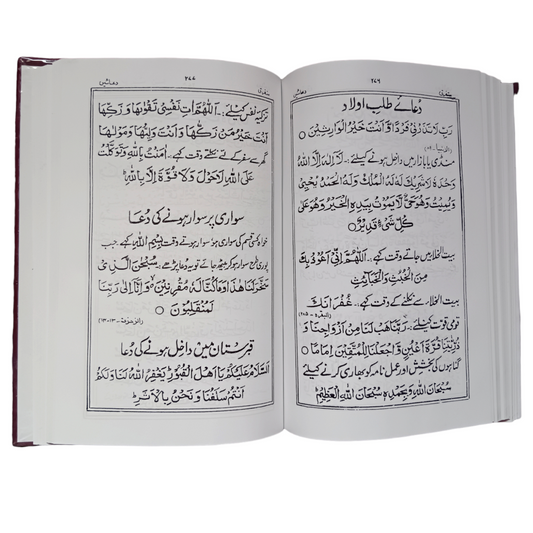 ۲۷۶
دُعائے طلب اولاد
رَبِّ لَا تَذَرْنِیْ فَرْدًا وَّاَنْتَ خَیْرُ الْوَارِثِیْنَ ○
منڈی یا بازار میں داخل ہونے کیلئے :۔ لَا اِلٰهَ اِلَّا اللّٰهُ
وَحْدَهٗ لَا شَرِیْكَ لَهٗ لَهُ الْمُلْكُ وَلَهُ الْحَمْدُ یُحْیِیْ
وَیُمِیْتُ وَهُوَ حَیٌّ لَّا یَمُوْتُ بِیَدِهِ الْخَیْرُ وَهُوَ عَلٰی
كُلِّ شَیْءٍ قَدِیْرٌ
بیت الخلا میں جاتے وقت کہے :۔ اَللّٰهُمَّ اِنِّیْ اَعُوْذُ بِكَ
مِنَ الْخُبُثِ وَالْخَبَآئِثِ
بیت الخلاء سے نکلنے کے وقت کہے :۔ غُفْرَانَكَ
قومی قوت کیلئے :۔ رَبَّنَا هَبْ لَنَا مِنْ اَزْوَاجِنَا وَ
ذُرِّیّٰتِنَا قُرَّةَ اَعْیُنٍ وَّاجْعَلْنَا لِلْمُتَّقِیْنَ اِمَامًا ○
گناہوں کی بخشش اور عمل نامہ کو بھاری کرنے کیلئے
سُبْحَانَ اللّٰهِ وَبِحَمْدِهٖ سُبْحَانَ اللّٰهِ الْعَظِیْمِ
۲۷۷
تزکیہ نفس کیلئے :۔ اَللّٰهُمَّ اٰتِ نَفْسِیْ تَقْوٰىهَا وَزَكِّهَا
اَنْتَ خَیْرُ مَنْ زَكّٰهَا وَاَنْتَ وَلِیُّهَا وَمَوْلٰىهَا
گھر سے سفر کے لئے نکلتے وقت کہے :۔ اٰمَنْتُ بِاللّٰهِ وَتَوَكَّلْتُ
عَلَی اللّٰهِ لَا حَوْلَ وَلَا قُوَّةَ اِلَّا بِاللّٰهِ
سواری پر سوار ہونے کی دُعا
خواہ کسی قسم کی سواری ہو سوار ہوتے وقت بِسْمِ اللّٰهِ کہے جب
پوری طرح سوار ہو کر بیٹھ جائے تو یہ دعا پڑھے :۔ سُبْحٰنَ الَّذِیْ
سَخَّرَ لَنَا هٰذَا وَمَا كُنَّا لَهٗ مُقْرِنِیْنَ ○ وَاِنَّا اِلٰی رَبِّنَا
لَمُنْقَلِبُوْنَ ○
قبرستان میں داخل ہونے کی دُعا
اَلسَّلَامُ عَلَیْكُمْ یَا اَهْلَ الْقُبُوْرِ یَغْفِرُ اللّٰهُ لَنَا وَلَكُمْ
اَنْتُمْ سَلَفُنَا وَنَحْنُ بِالْاَثَرِ